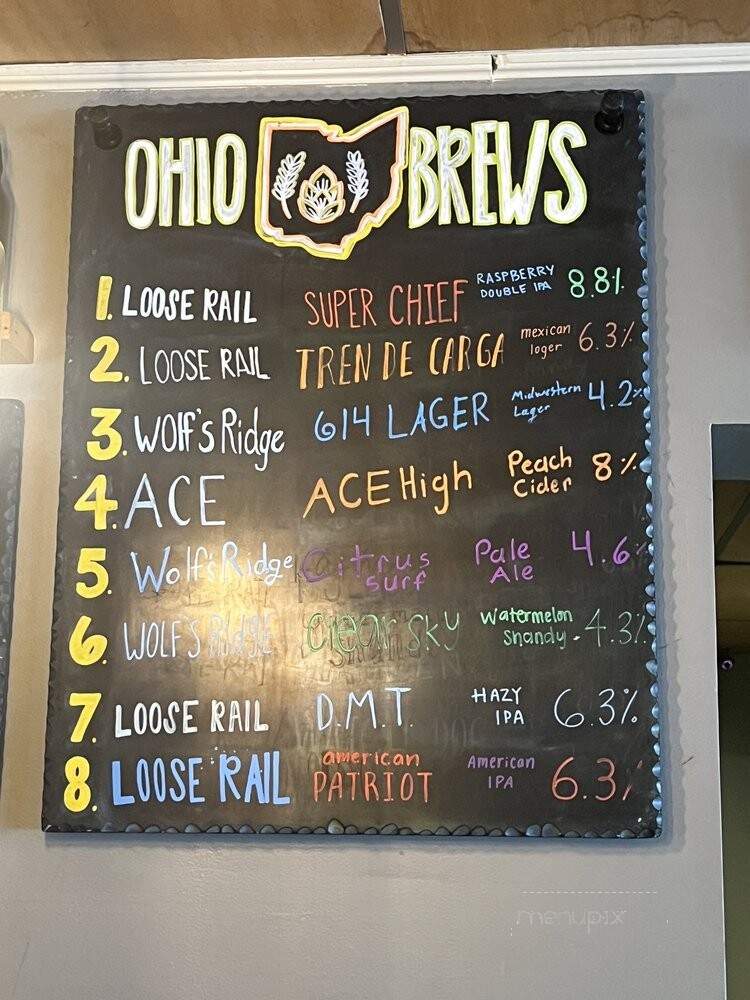 OHIO BREWS
1. LOOSE RAIL SUPER CHIEF RASPBERRY DOUBLE IPA 8.8%
2. LOOSE RAIL TREN DE CARGA mexican lager 6.3%
3. Wolf's Ridge 614 LAGER Midwestern Lager 4.2%
4. ACE ACE High Peach Cider 8%
5. Wolf's Ridge Citrus Surf Pale Ale 4.6%
6. WOLF'S RIDGE Clear SKY Watermelon Shandy. 4.3%
7. LOOSE RAIL D.M.T. HAZY IPA 6.3%
8. LOOSE RAIL american PATRIOT American IPA 6.3%
menupix